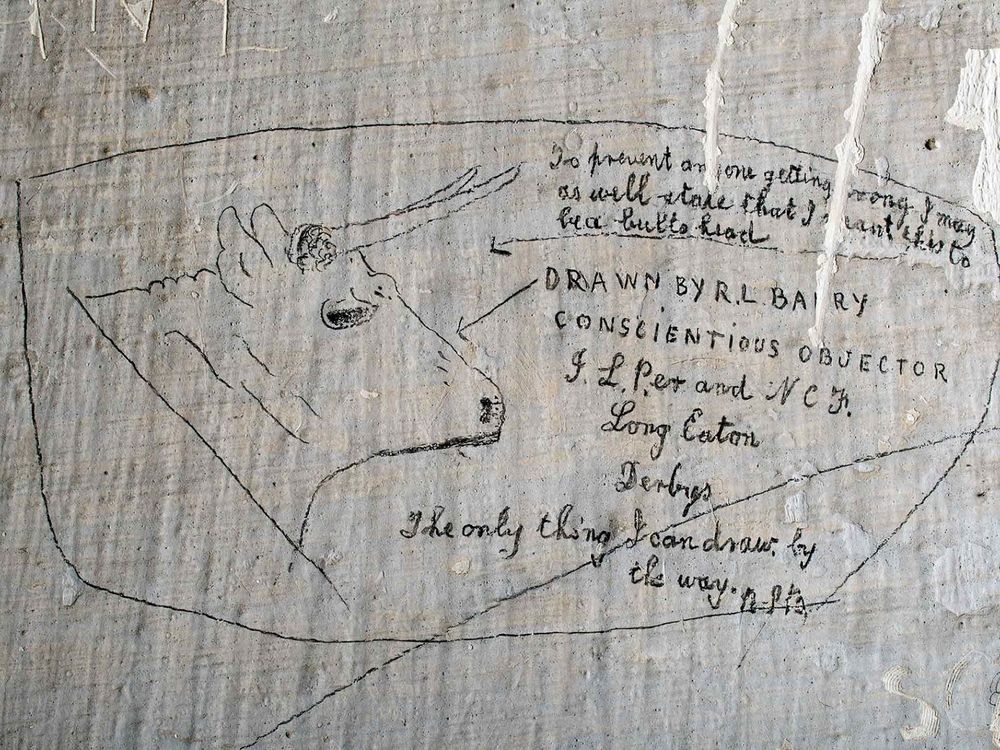 To prevent anyone getting wrong I may
as well state that I meant this to
be a bull's head
DRAWN BY R. L. BARRY
CONSCIENTIOUS OBJECTOR
I. L. P.er and N C F.
Long Eaton
Derbys
The only thing I can draw by
the way.